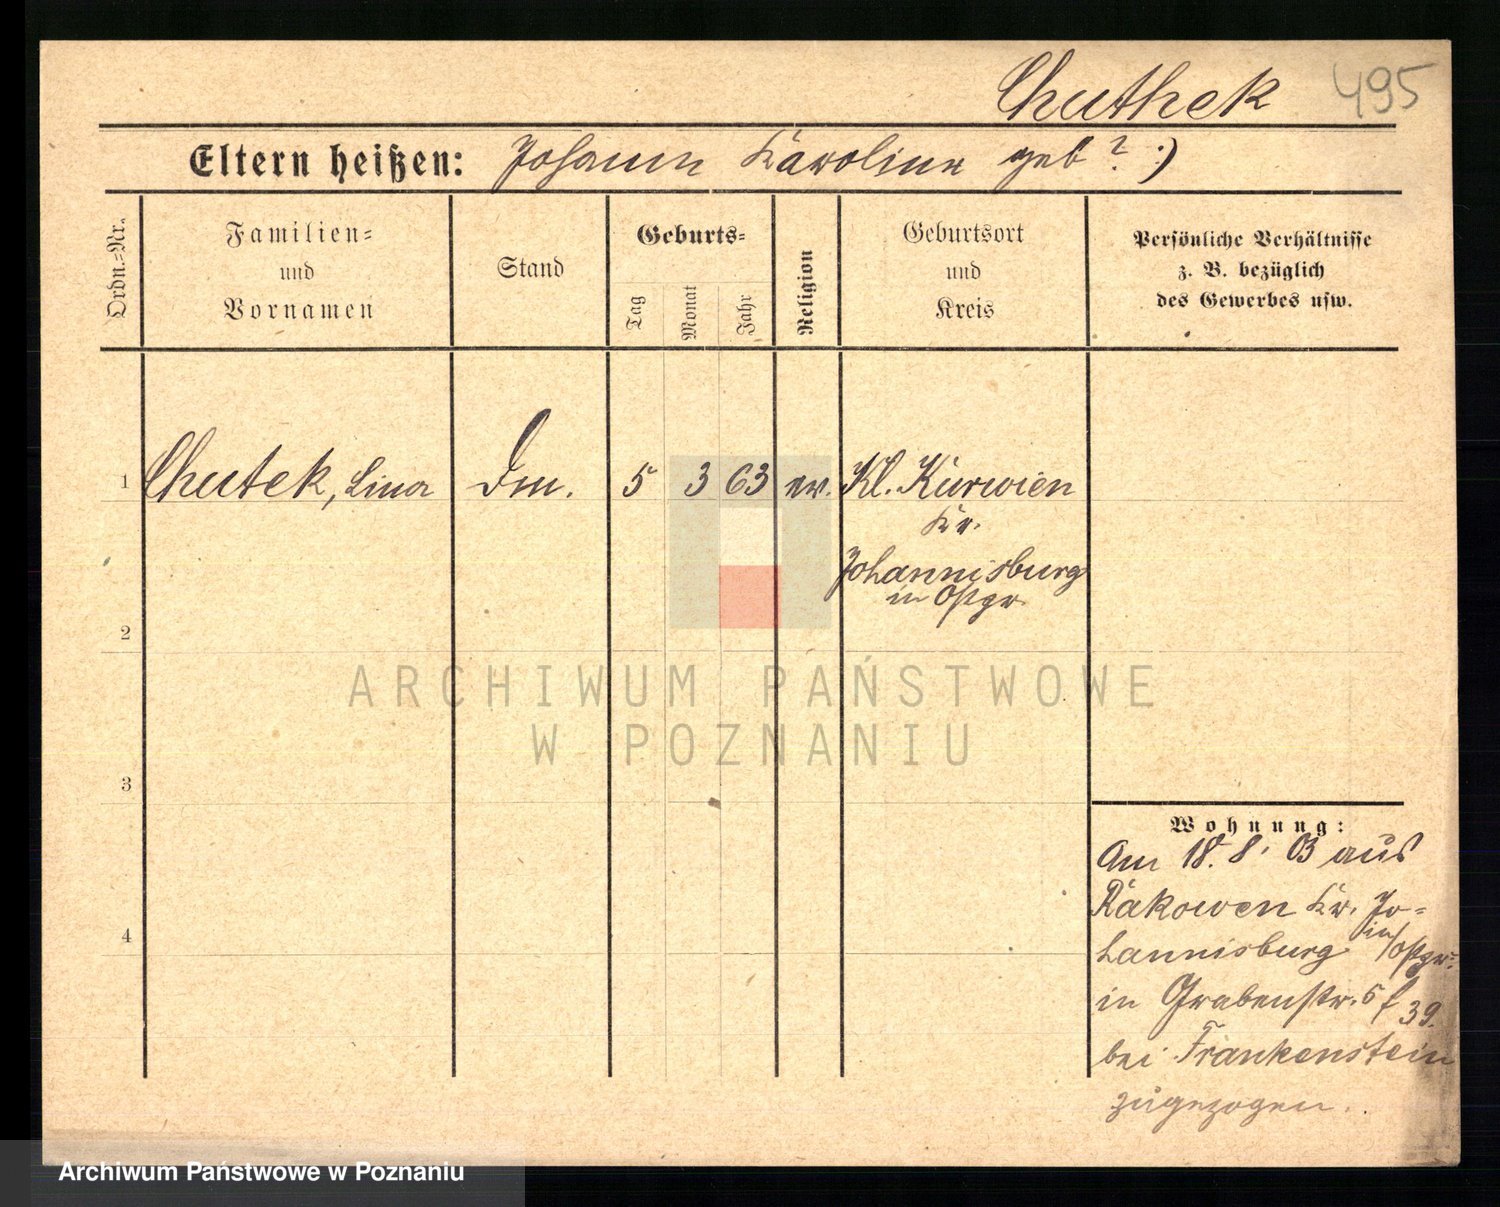 Chuthek 495
Eltern heißen: Johann Karoline geb ? :)
Ordn.-Nr.
Familien-
und
Vornamen
Stand
Geburts-
Tag
Monat
Jahr
Religion
Geburtsort
und
Kreis
Persönliche Verhältnisse
z. B. bezüglich
des Gewerbes usw.
1 Chutek, Lina 5 3 63 ev. Kl. Kurwien
Kr.
Johannisburg
in Ostpr.
2
3
4
Wohnung:
Am 18. 8. 03 aus
Rakowen Kr. Jo-
hannisburg in/Ostpr.
in Grabenstr. 5 f 39.
bei Frankenstein
zugezogen.
ARCHIWUM PAŃSTWOWE
W POZNANIU
Archiwum Państwowe w Poznaniu